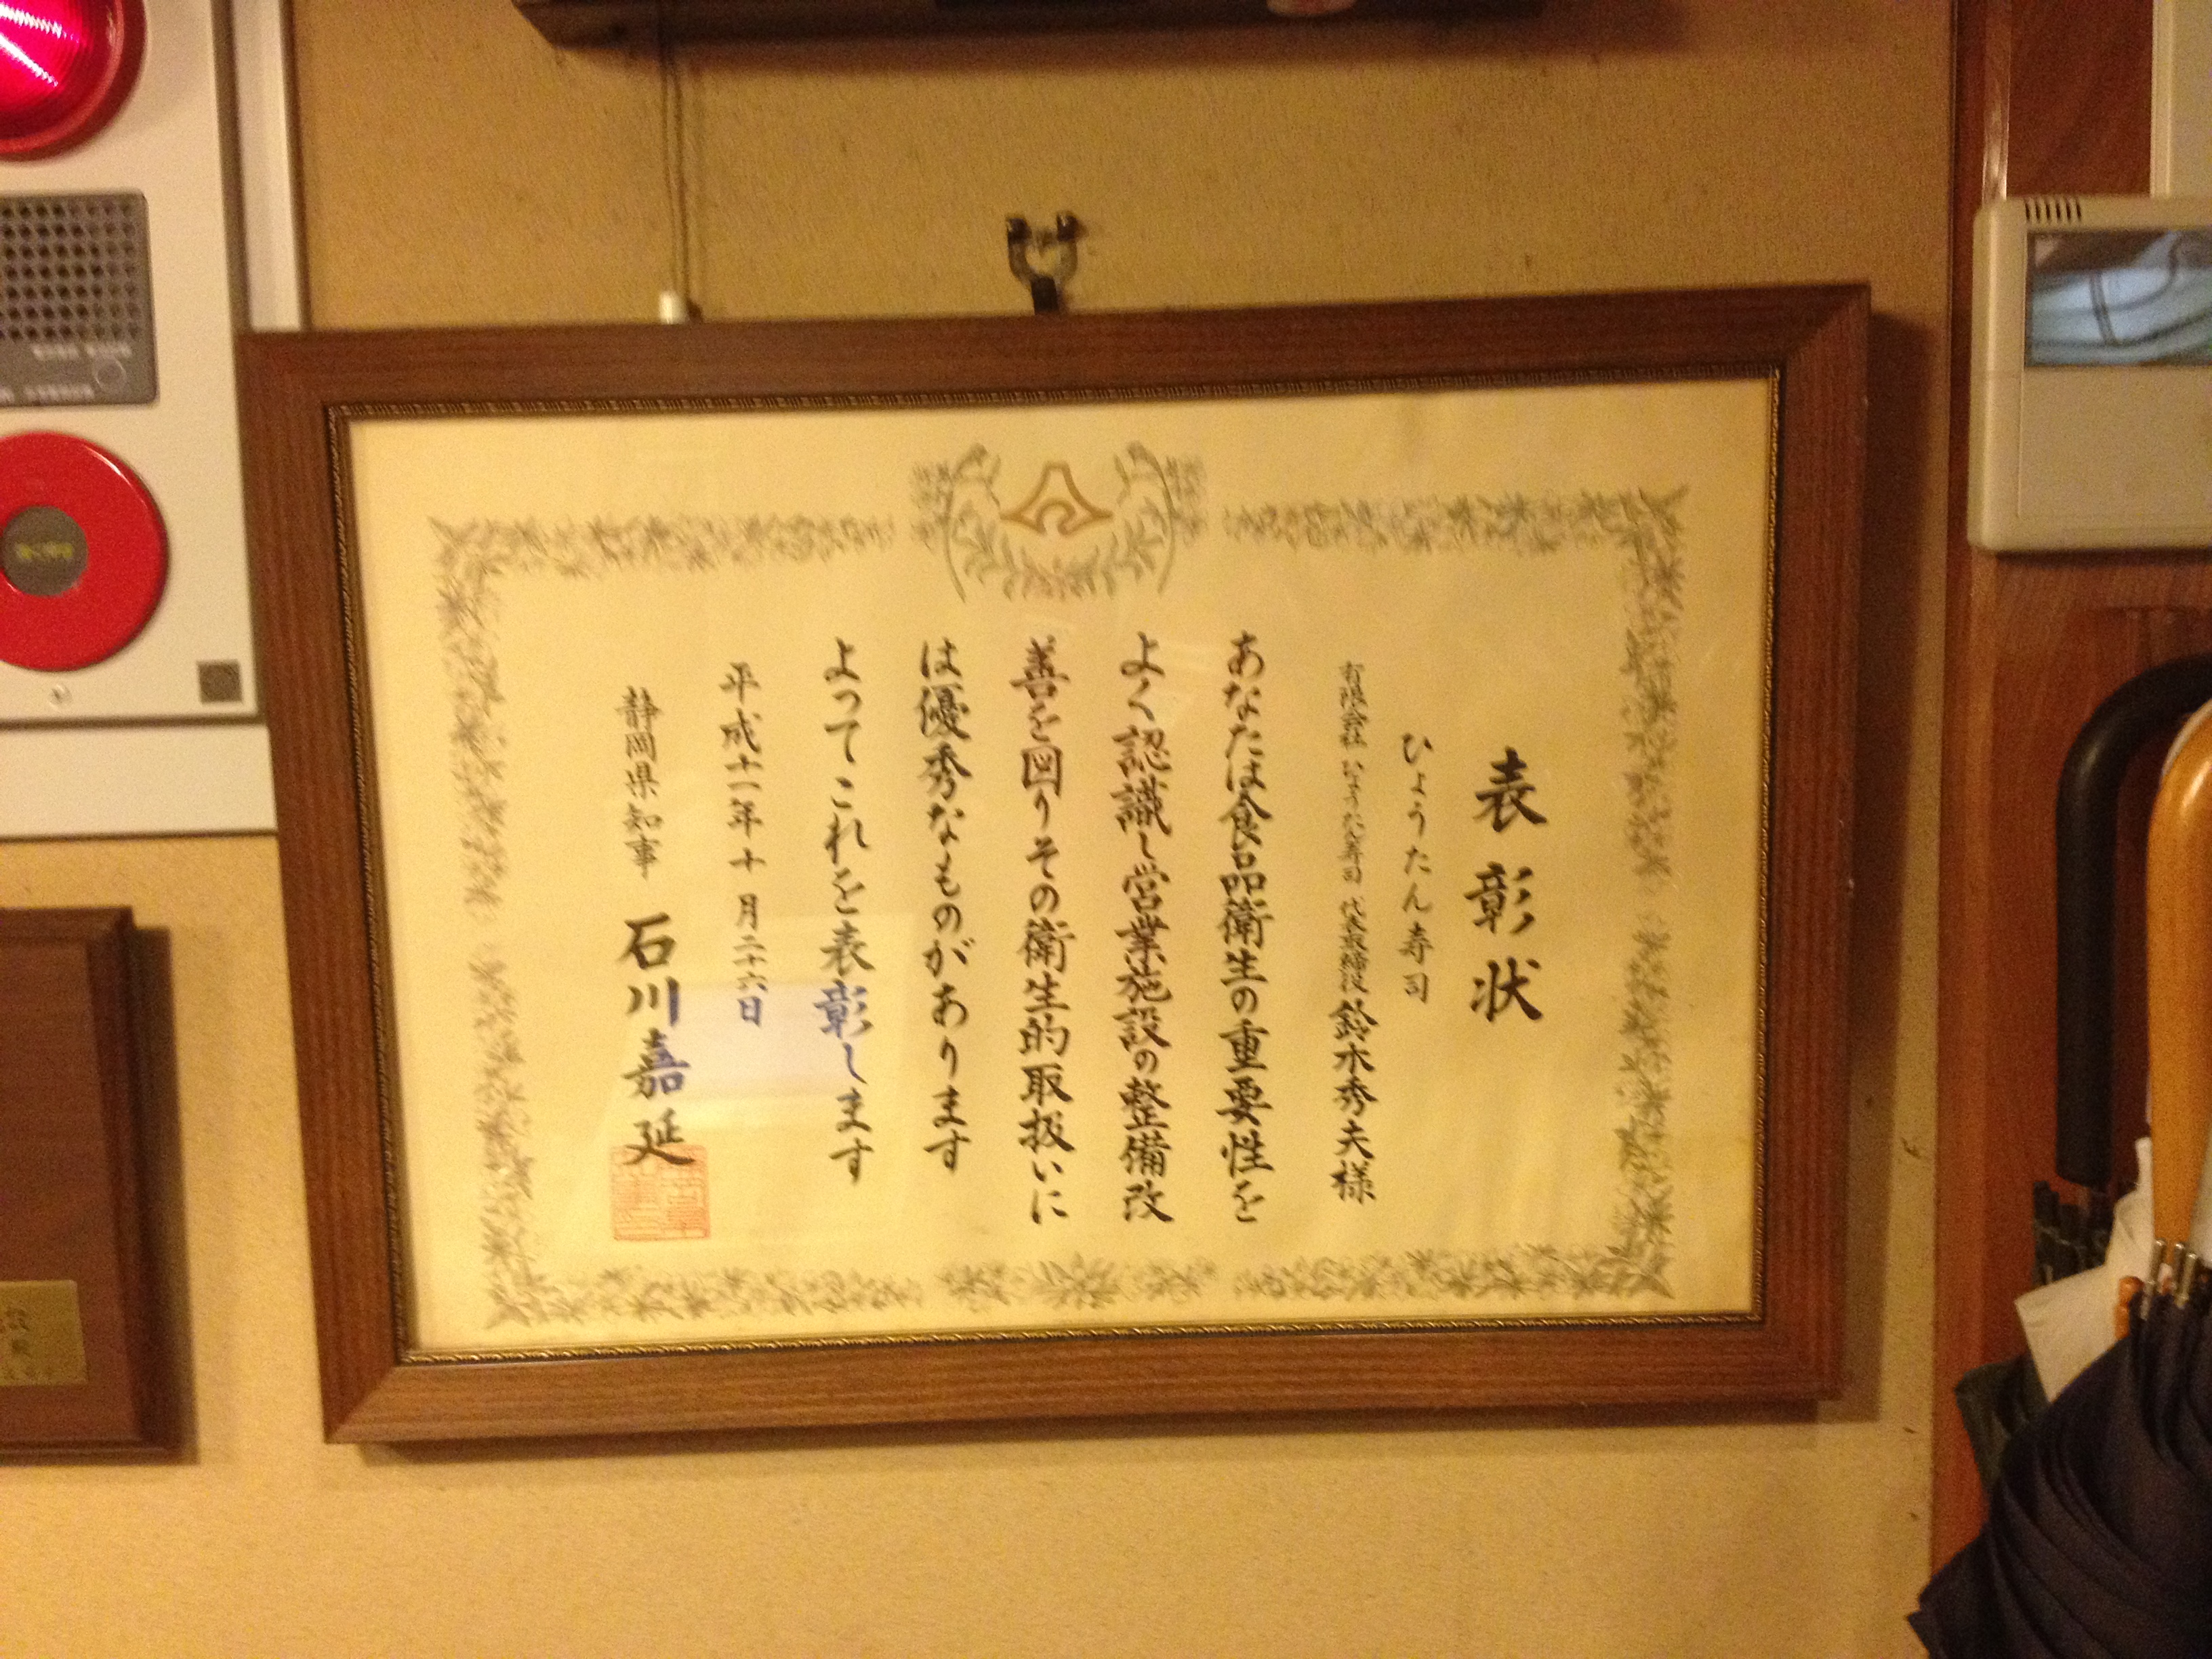 表彰状
ひょうたん寿司
有限会社 ひょうたん寿司 代表取締役 鈴木秀夫様
あなたは食品衛生の重要性を
よく認識し営業施設の整備改
善を図りその衛生的取扱いに
は優秀なものがあります
よってこれを表彰します
平成十一年十月二十六日
静岡県知事 石川嘉延